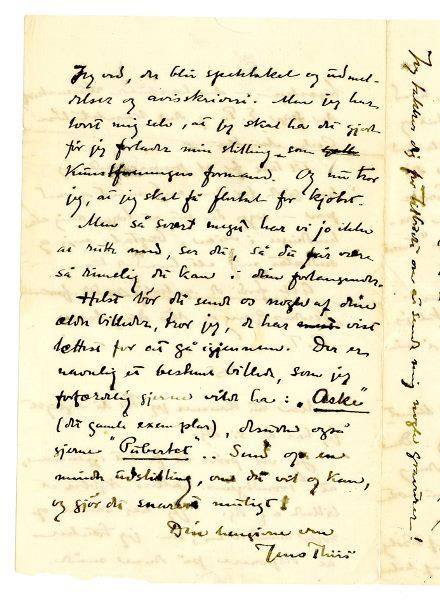 Jeg ved, der blir spektakel og udmel-
delser og avisskriveri. Men jeg har
lovet mig selv, at jeg skal ha det gjort
før jeg forlader min stilling som
Kunstforeningens formand. Og nu tror
jeg, at jeg skal få flertal for kjøbet.
Men så svært meget har vi jo ikke
at rutte med, ser du, så du får være
så rimelig du kan i dine forlangender.
Helst bør du sende os nogle af dine
ældre billeder, tror jeg, de har vist
lettest for at gå igjennem. Der er
navnlig et bestemt billede, som jeg
forfærdelig gjerne vilde ha: "Aske"
(det gamle exemplar), desuden også
gjerne "Pubertet".. Send op en
mindre udstilling, om du vil og kan,
og gjør det snarest muligt!
Din hengivne ven
Jens Thiis
Jeg takker dig for tilbudet om at sende mig nogle !